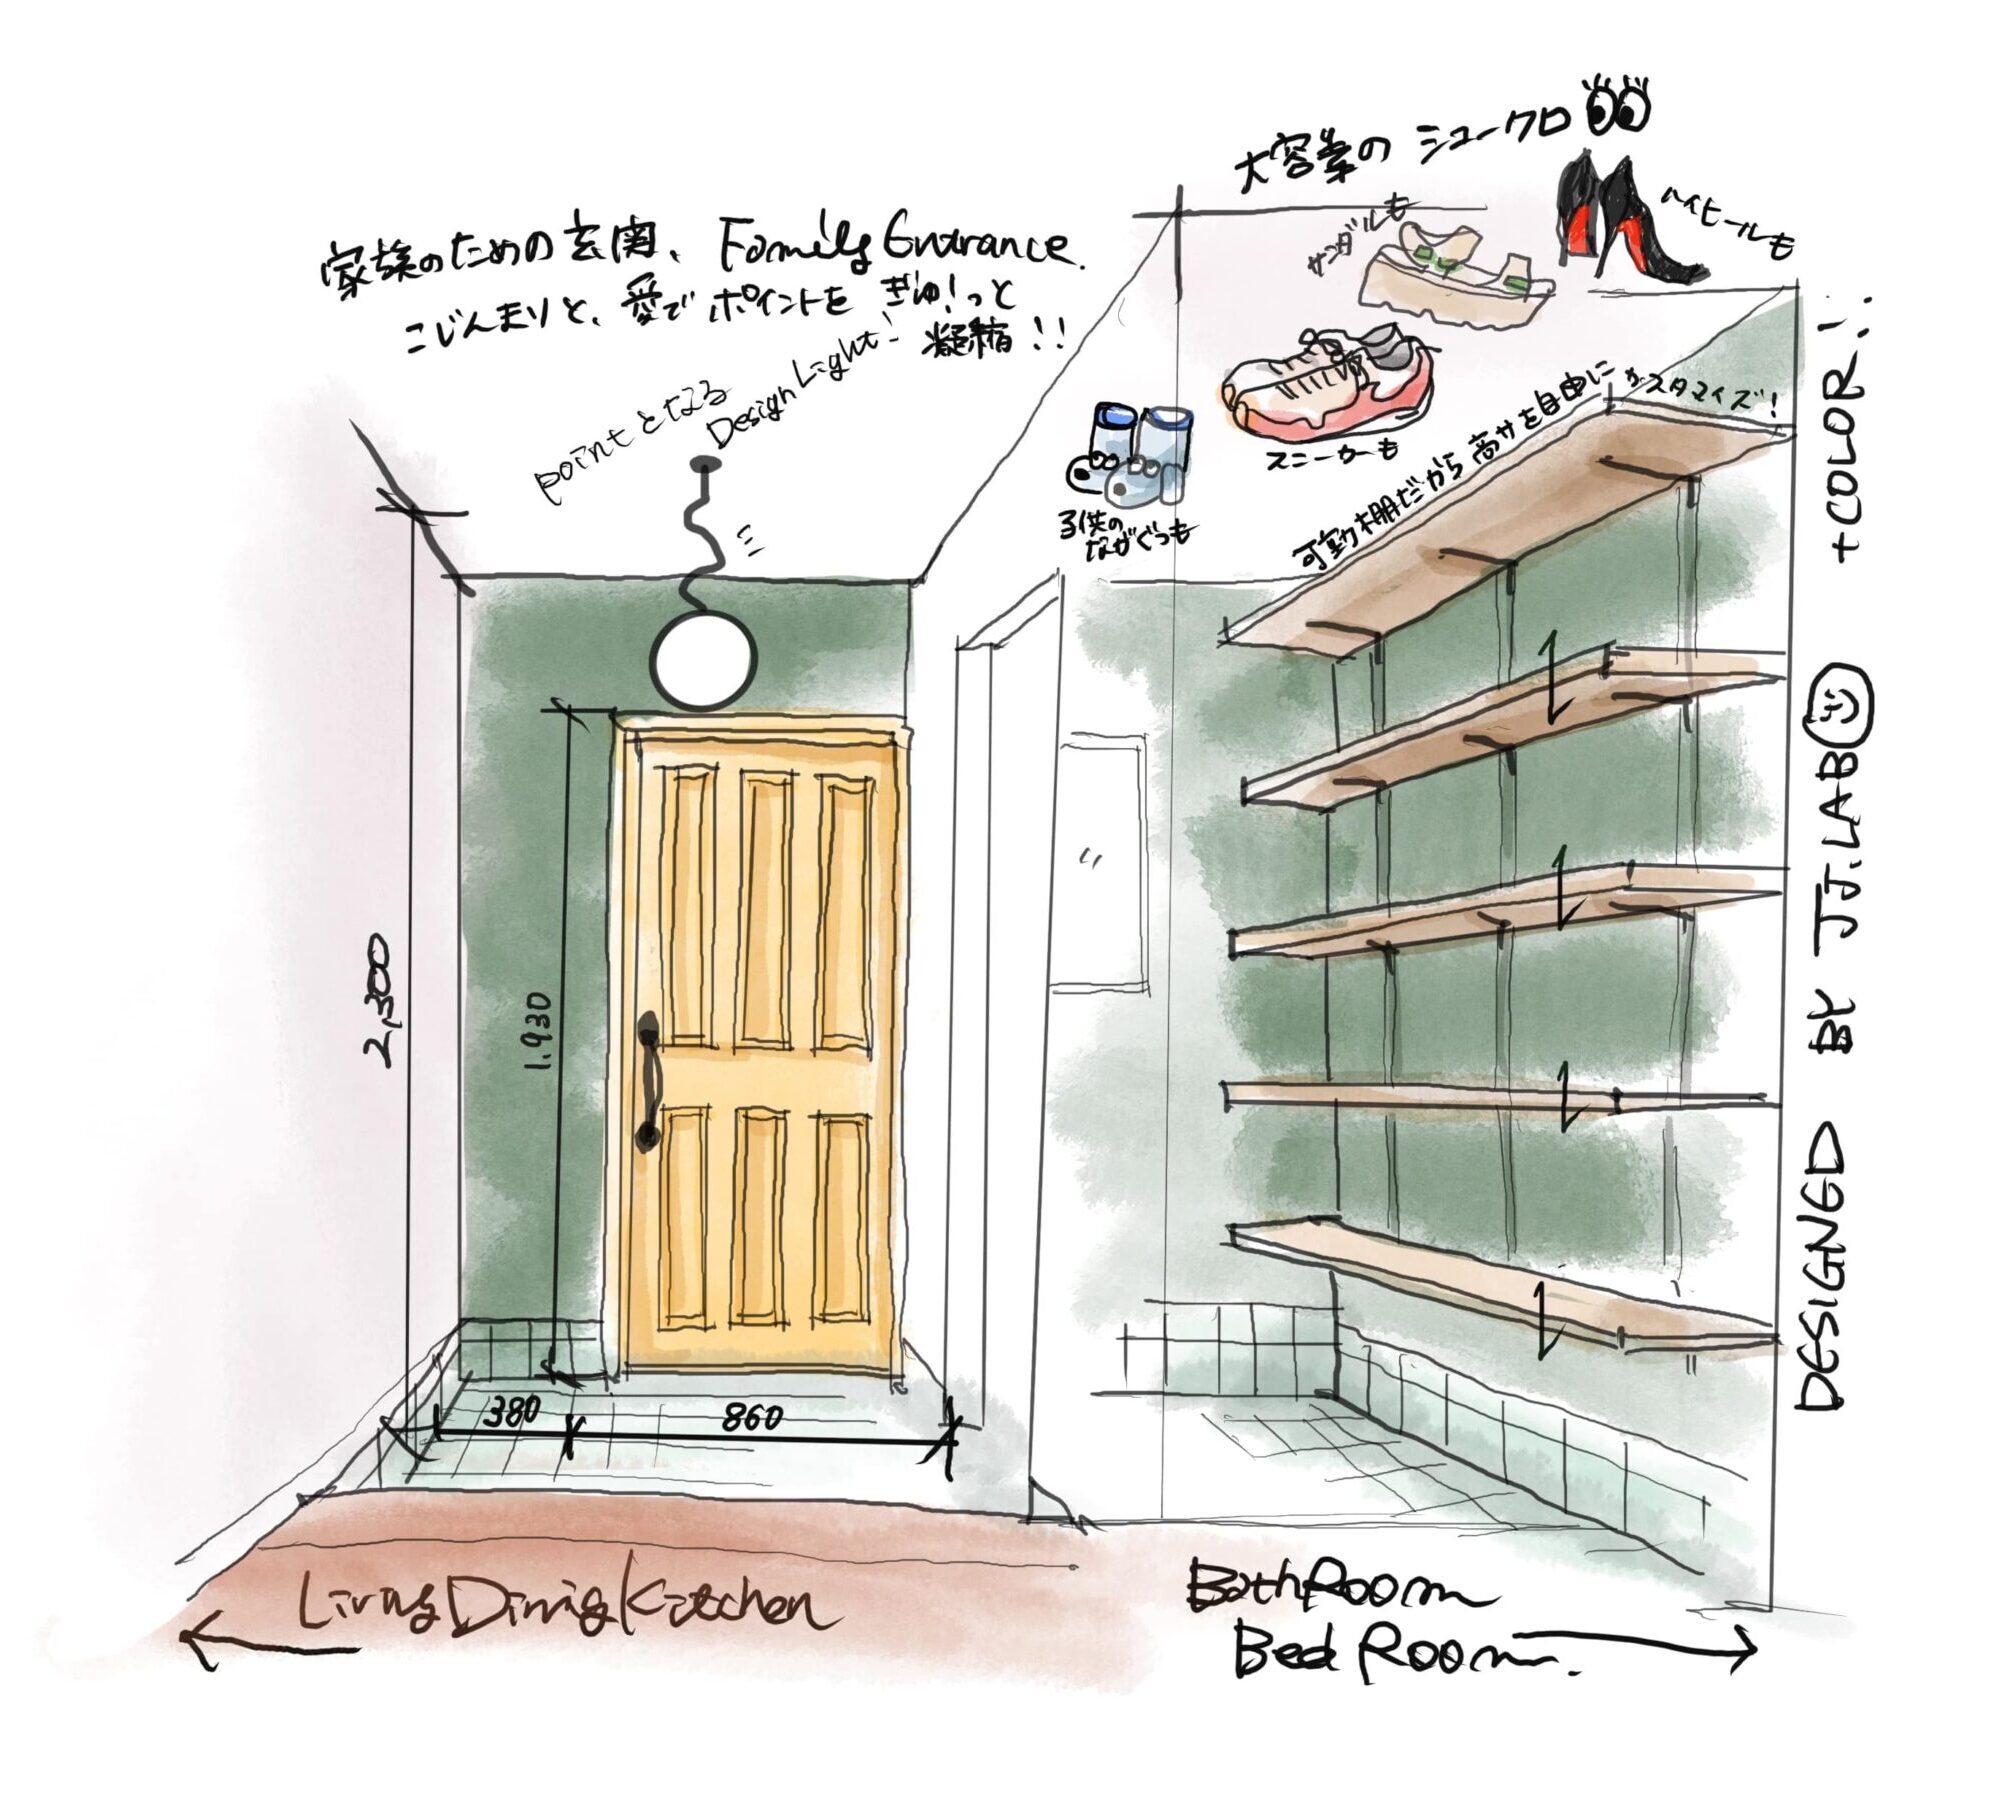 大容量のシュークロ
ハイヒールも
サンダルも
家族のための玄関、Family Entrance.
こじんまりと、愛でポイントをぎゅ!っと
凝縮!!
pointとなる
Design Light!
スニーカーも
子供の
ながぐつも
可動棚だから高サを自由にカスタマイズ!
2,300
1.930
380
860
Living Dining Kitchen
BathRoom
Bed Room.
DESIGNED BY JJ.LABO +COLOR!!